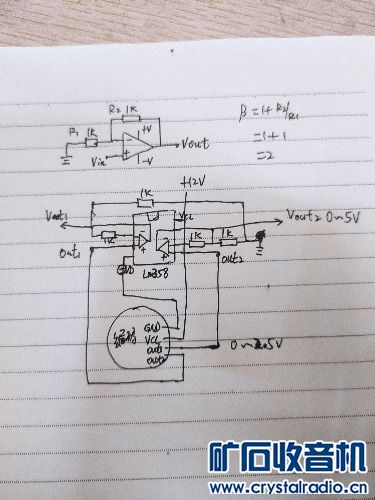 R2 1K
R1 1K
Vin
+V
-V
Vout
β=1+R2/R1
=1+1
=2
+12V
1K
Vout1
VCC
Vout2 0~5V
1K
1K
1K
out1
out2
GND
LM358
GND
VCC
out1
out2
0~2.5V
矿石收音机
www.crystalradio.cn